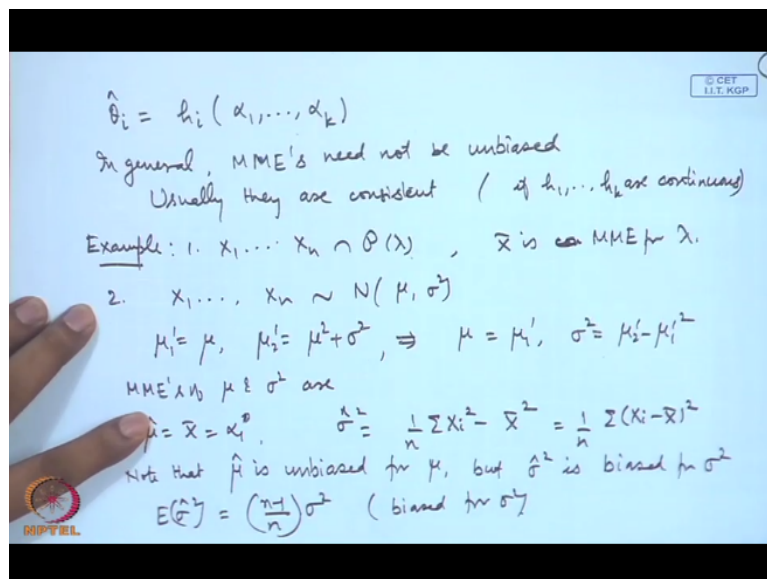 © CET
I.I.T. KGP
θ̂i = hi ( α1, ..., αk )
In general, MME's need not be unbiased
Usually they are consistent ( if h1, ... hk are continuous)
Example: 1. X1 .... Xn ∩ P(λ) , X̄ is MME for λ.
2. X1 ...., Xn ~ N( μ, σ²)
μ1' = μ, μ2' = μ² + σ² , ⇒ μ = μ1', σ² = μ2' - μ1'²
MME's of μ & σ² are
μ̂ = X̄ = α1 , σ̂² = 1/n ΣXi² - X̄² = 1/n Σ(Xi - X̄)²
Note that μ̂ is unbiased for μ, but σ̂² is biased for σ²
E(σ̂²) = (n-1/n) σ² ( biased for σ²)
NPTEL